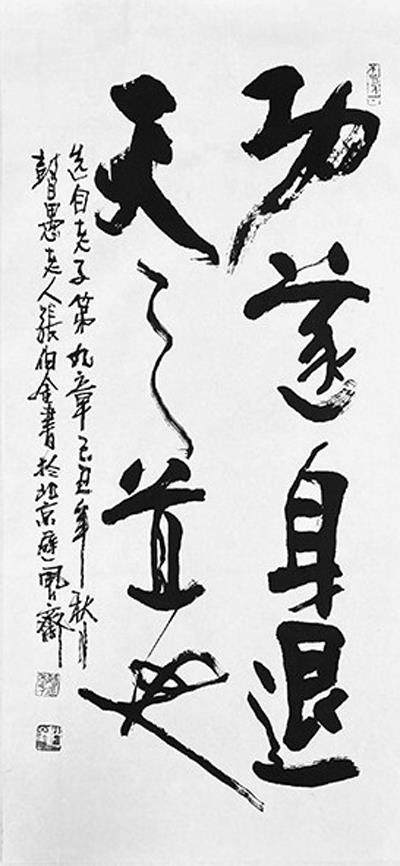 功遂身退
天之道也
选自老子第九章己丑年秋月
愚老人張伯全書於北京避風齋